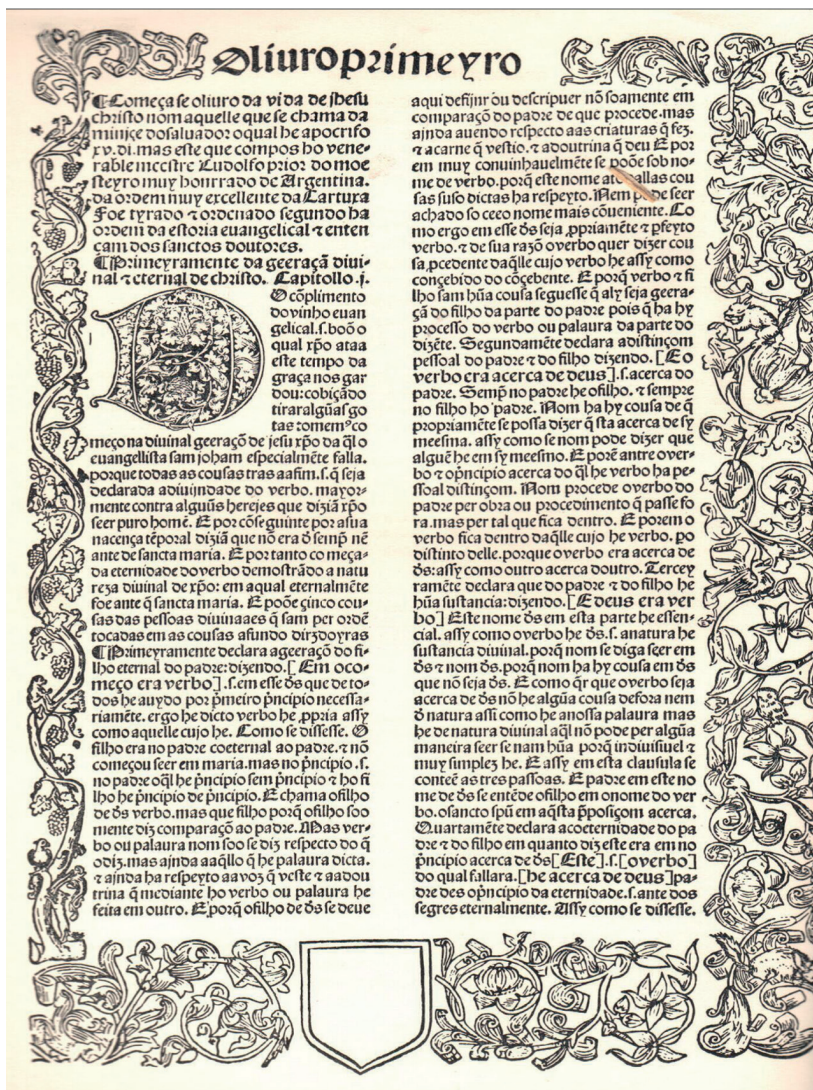 Oliuro primeyro
¶Começa se oliuro da vida de jhesu
christo nom aquelle que se chama da
minijçe dosaluador o qual he apocrifo
xv. di. mas este que compos ho vene-
rable meestre Ludolfo prior do moe
steyro muy honrrado de Argentina.
da ordem muy excellente da Cartuxa
Foe tyrado ⁊ ordenado segundo ha
ordem da estoria euangelical ⁊ enten
cam dos sanctos doutores.
¶Primeyramente da geeraçã diui-
nal ⁊ eternal de christo. Capitollo .j.
O cõplimento
do vinho euan
gelical .s. boõ o
qual xp̃o ataa
este tempo da
graça nos gar
dou: cobiçãdo
tirar algũas go
tas: omemꝰ co
meço na diuinal geeraçõ de jesu xp̃o da q̃l o
euangellista sam joham especialmẽte falla.
porque todas as cousas tras a afim .s. q̃ seja
declarada a diuijndade do verbo. mayor-
mente contra alguũs herejes que dizïã xp̃o
seer puro homẽ. E por cõseguinte por a sua
nacença tẽporal diziã que nõ era d̃ semp̃ nẽ
ante de sancta maria. E por tanto co meça-
da eternidade do verbo demostrãdo a natu
reza diuinal de xp̃o: em a qual eternalmẽte
foe ante q̃ sancta maria. E poõe çinco cou-
sas das pessoas diuinaaes q̃ sam per ordẽ
tocadas em as cousas a fundo dirzdoyras
¶Primeyramente declara a geeraçõ do fi-
lho eternal do padre: dizendo. [Em oco-
meço era verbo] .s. em esse d̃s que de to-
dos he auydo por p̃meiro p̃ncipio necessa-
riamẽte. ergo he dicto verbo he ꝓpria assy
como aquelle cujo he. Como se dissesse. O
filho era no padre coeternal ao padre. ⁊ nõ
começou seer em maria. mas no p̃ncipio .s.
no padre oq̃l he p̃ncipio sem p̃ncipio ⁊ ho fi
lho he p̃ncipio de p̃ncipio. E chama ofilho
de d̃s verbo. mas que filho porq̃ ofilho soo
mente diz comparaçõ ao padre. Mas ver-
bo ou palaura nom soo se diz respecto do q̃
o diz. mas ajnda a aq̃llo q̃ he palaura dicta.
⁊ ajnda ha respeyto a a voz q̃ veste ⁊ a a dou
trina q̃ mediante ho verbo ou palaura he
feita em outro. E porq̃ ofilho de d̃s se deue
aqui defijnr ou descripuer nõ soamente em
comparaçõ do padre de que procede. mas
ajnda auendo respecto aas criaturas q̃ fez.
⁊ a carne q̃ vestio. ⁊ a doutrina q̃ deu E por
em muy conuinhauelmẽte se poõe sob no-
me de verbo. porq̃ este nome allas cou
sas suso dictas ha respeyto. Nem seer
achado so ceeo nome mais cõueniente. Co
mo ergo em esse d̃s seja ꝓpriamẽte ⁊ p̃feyto
verbo. ⁊ de sua razõ o verbo quer dizer cou
sa ꝓcedente da q̃lle cujo verbo he assy como
conçebido do cõçebente. E porq̃ verbo ⁊ fi
lho sam hũa cousa seguesse q̃ aly seja geera-
çã do filho da parte do padre pois q̃ ha hy
processo do verbo ou palaura da parte do
dizẽte. Segundamẽte declara a distinçom
pessoal do padre ⁊ do filho dizendo. [E o
verbo era acerca de deus] .s. acerca do
padre. Semp̃ no padre he ofilho. ⁊ sempre
no filho ho padre. Nom ha hy cousa de q̃
propriamẽte se possa dizer q̃ sta acerca de sy
meesma. assy como se nom pode dizer que
alguẽ he em sy meesmo. E porẽ antre o ver-
bo ⁊ o p̃ncipio acerca do q̃l he verbo ha pe-
ssoal distinçom. Nom procede o verbo do
padre per obra ou procedimento q̃ passe fo
ra. mas per tal que fica dentro. E porem o
verbo fica dentro da q̃lle cujo he verbo. po
distinto delle. porque o verbo era acerca de
d̃s: assy como outro acerca doutro. Tercey
ramẽte declara que do padre ⁊ do filho he
hũa sustancia: dizendo. [E deus era ver
bo] Este nome d̃s em esta parte he essen-
cial. assy como o verbo he d̃s .s. a natura he
sustancia diuinal. porq̃ nom se diga seer em
d̃s ⁊ nom d̃s. porq̃ nom ha hy cousa em d̃s
que nõ seja d̃s. E como q̃r que o verbo seja
acerca de d̃s nõ he algũa cousa de fora nem
d̃ natura assi como he a nossa palaura mas
he de natura diuinal a q̃l nõ pode per algũa
maneira seer se nam hũa porq̃ indiuisuel ⁊
muy simplez he. E assy em esta clausula se
conteẽ as tres passoas. E padre em este no
me de d̃s se entẽde ofilho em o nome do ver
bo. o sancto spũ em aq̃sta p̃posiçom acerca.
Quartamẽte declara a coeternidade do pa
dre ⁊ do filho em quanto diz este era em no
p̃ncipio acerca de d̃s [Este] .s. [o verbo]
do qual fallara. [he acerca de deus] pa-
dre des o p̃ncipio da eternidade .s. ante dos
segres eternalmente. Assy como se dissesse.